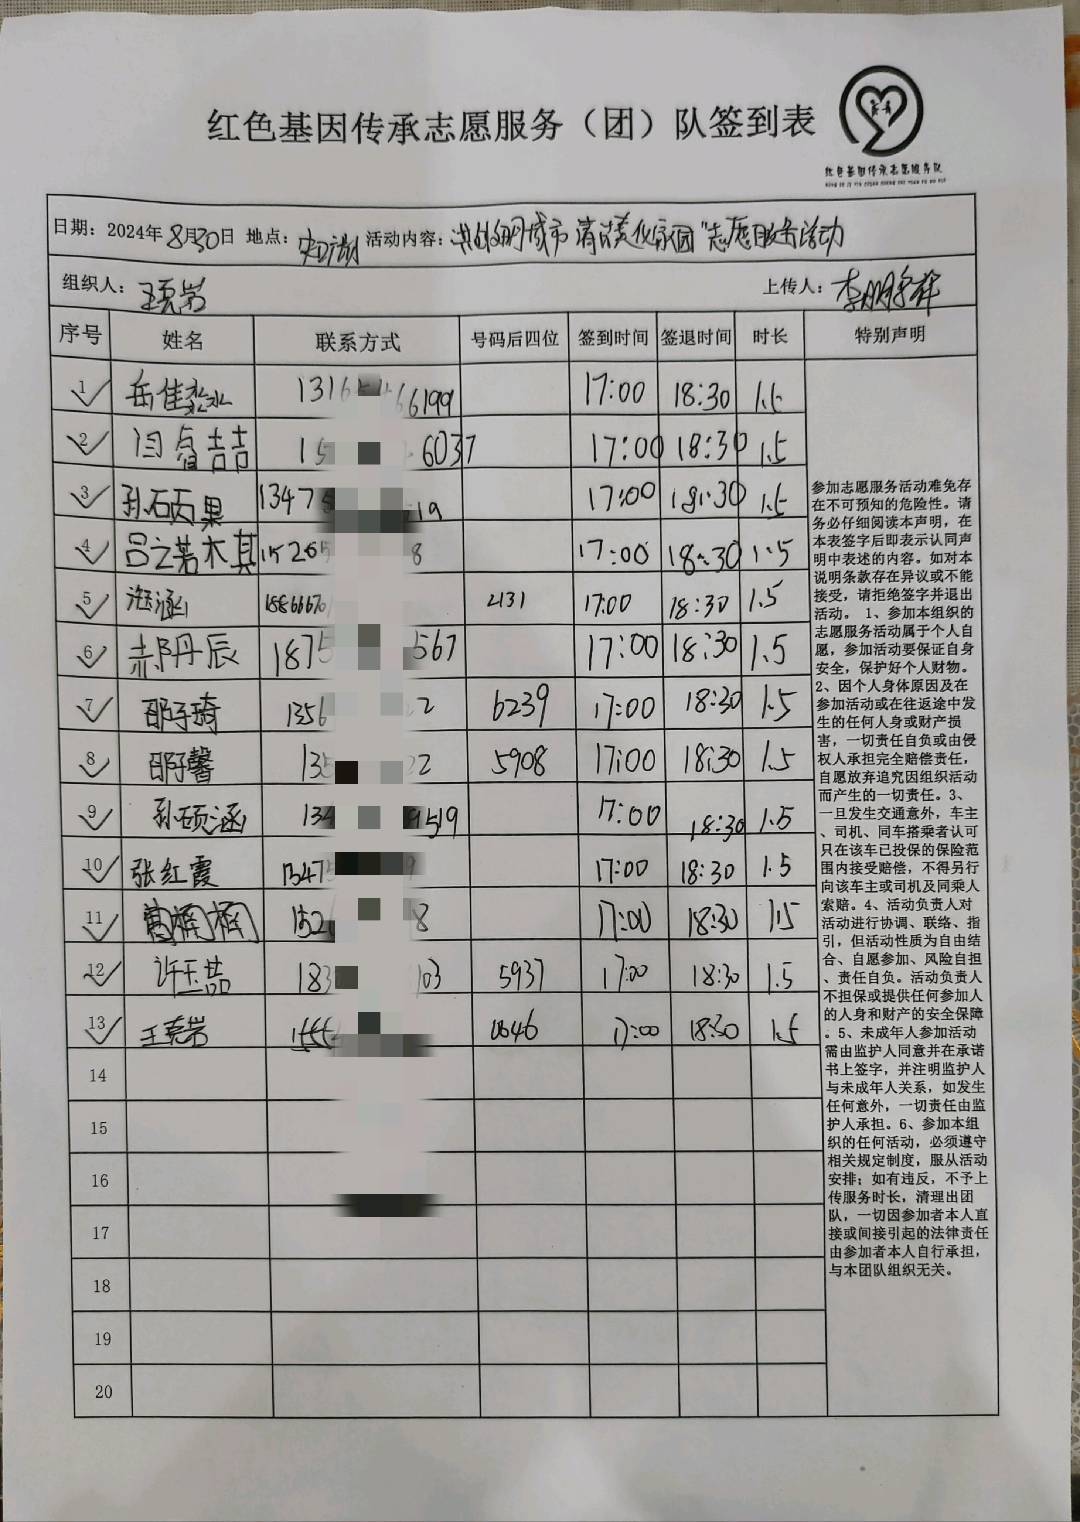 红色基因传承志愿服务（团）队签到表
红色基因传承志愿服务队
日期：2024年8月30日 地点： 活动内容： 城市 家园"志愿服务活动
组织人：王克岩 上传人：李
序号 姓名 联系方式 号码后四位 签到时间 签退时间 时长 特别声明
1 岳佳淼 1316 66199 17:00 18:30 1.5
2 闫睿喆 15 6037 17:00 18:30 1.5
3 孙硕果 1347 19 17:00 18:30 1.5
4 吕之若木其 15265 8 17:00 18:30 1.5
5 涵 15866670 2131 17:00 18:30 1.5
6 郝丹辰 1875 567 17:00 18:30 1.5
7 邵子琦 1356 2 6239 17:00 18:30 1.5
8 邵子馨 135 22 5908 17:00 18:30 1.5
9 孙硕涵 134 9519 17:00 18:30 1.5
10 张红霞 13475 9 17:00 18:30 1.5
11 葛楠楠 152 8 17:00 18:30 1.5
12 许玉喆 183 103 5937 17:00 18:30 1.5
13 王克岩 1555 0646 17:00 18:30 1.5
14
15
16
17
18
19
20
参加志愿服务活动难免存
在不可预知的危险性。请
务必仔细阅读本声明，在
本表签字后即表示认同声
明中表述的内容。如对本
说明条款存在异议或不能
接受，请拒绝签字并退出
活动。 1、参加本组织的
志愿服务活动属于个人自
愿，参加活动要保证自身
安全，保护好个人财物。
2、因个人身体原因及在
参加活动或在往返途中发
生的任何人身或财产损
害，一切责任自负或由侵
权人承担完全赔偿责任，
自愿放弃追究因组织活动
而产生的一切责任。3、
一旦发生交通意外，车主
、司机、同车搭乘者认可
只在该车已投保的保险范
围内接受赔偿，不得另行
向该车主或司机及同乘人
索赔。4、活动负责人对
活动进行协调、联络、指
引，但活动性质为自由结
合、自愿参加、风险自担
、责任自负。活动负责人
不担保或提供任何参加人
的人身和财产的安全保障
。5、未成年人参加活动
需由监护人同意并在承诺
书上签字，并注明监护人
与未成年人关系，如发生
任何意外，一切责任由监
护人承担。6、参加本组
织的任何活动，必须遵守
相关规定制度，服从活动
安排；如有违反，不予上
传服务时长，清理出团
队，一切因参加者本人直
接或间接引起的法律责任
由参加者本人自行承担，
与本团队组织无关。